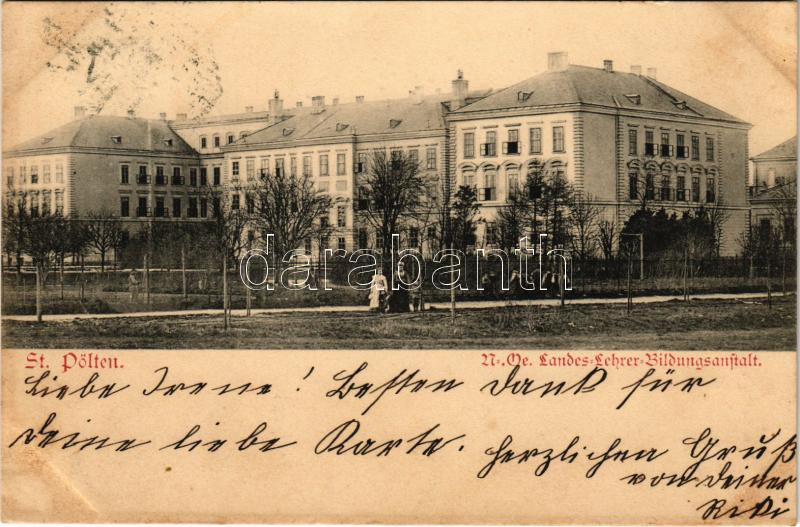 darabanth
St. Pölten.
N.-Oe. Landes-Lehrer-Bildungsanstalt.
Liebe Irene! Besten Dank für
deine liebe Karte. Herzlichen Gruß
von deiner
Riki